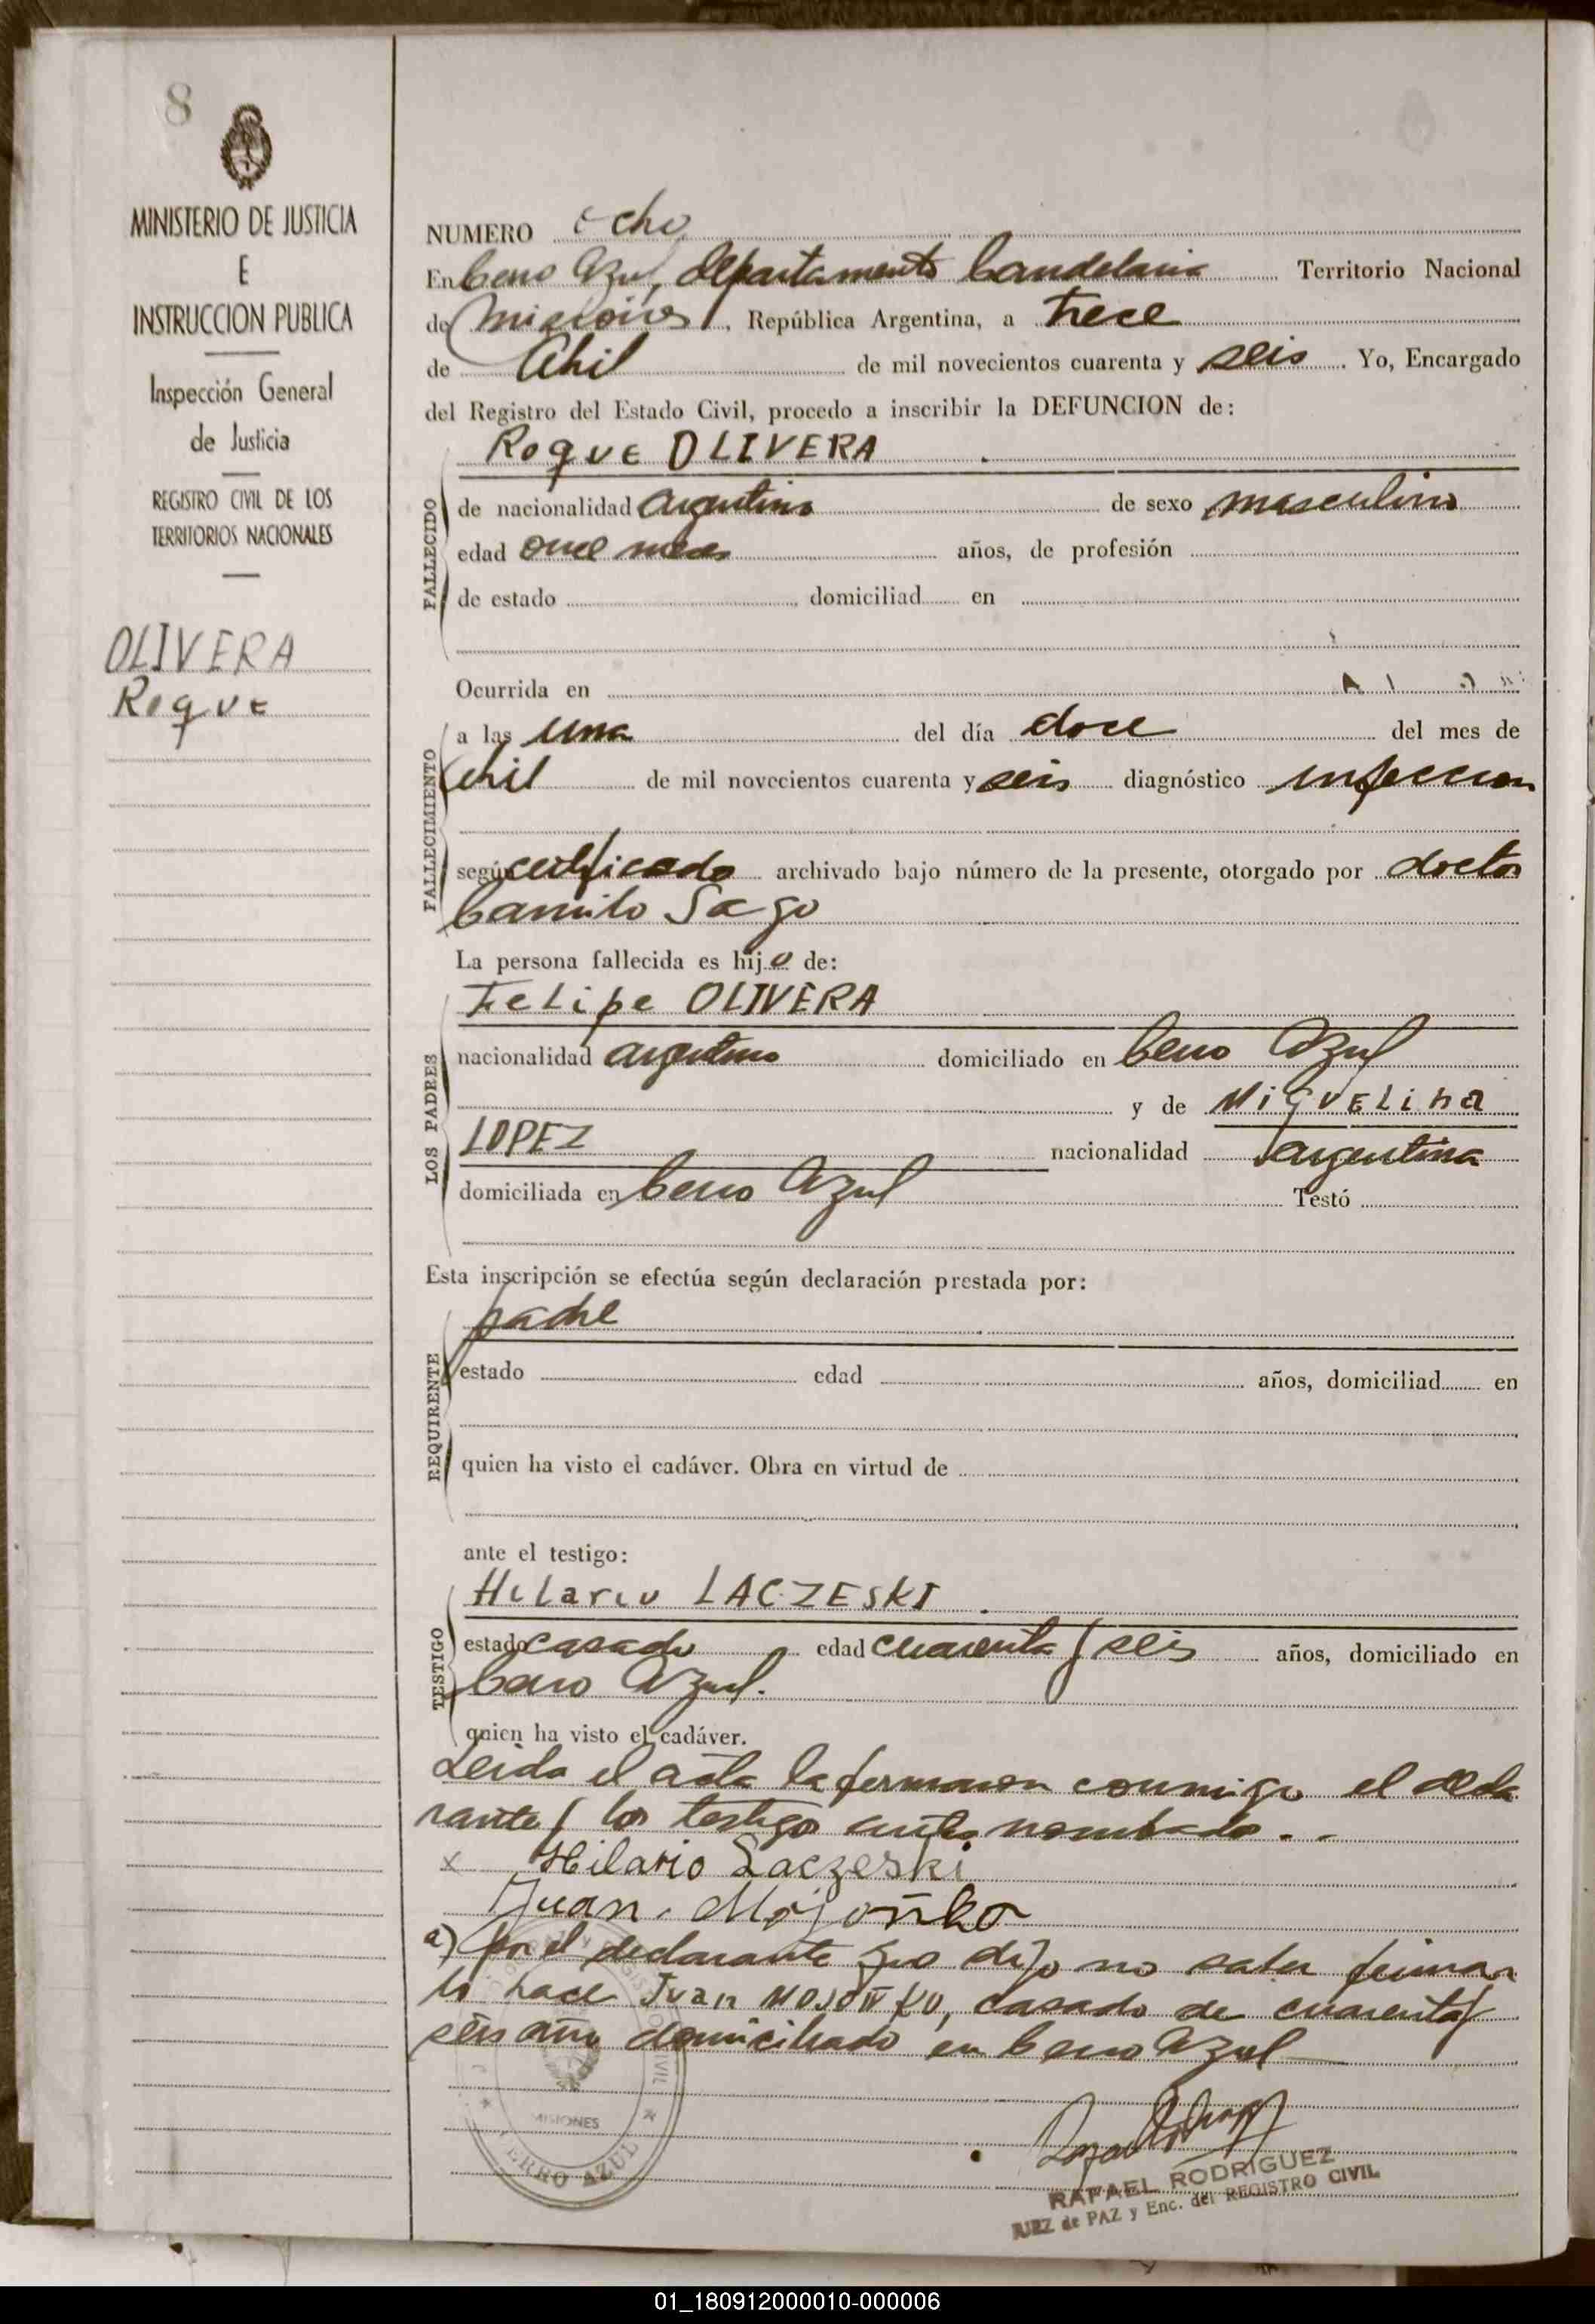 8
MINISTERIO DE JUSTICIA
E
INSTRUCCION PUBLICA
Inspección General
de Justicia
REGISTRO CIVIL DE LOS
TERRITORIOS NACIONALES
OLIVERA
Roque
NUMERO ocho
En Cerro Azul, departamento Candelaria Territorio Nacional
de Misiones, República Argentina, a trece
de Abril de mil novecientos cuarenta y seis. Yo, Encargado
del Registro del Estado Civil, procedo a inscribir la DEFUNCION de:
Roque OLIVERA
FALLECIDO
de nacionalidad argentina de sexo masculino
edad once meses años, de profesión
de estado domiciliad en
Ocurrida en
FALLECIMIENTO
a las una del día doce del mes de
abril de mil novecientos cuarenta y seis diagnóstico infeccion
según certificado archivado bajo número de la presente, otorgado por doctor
Camilo Sago
La persona fallecida es hijo de:
LOS PADRES
Felipe OLIVERA
nacionalidad argentino domiciliado en Cerro Azul
y de MiguELina
LOPEZ nacionalidad argentina
domiciliada en Cerro Azul Testó
Esta inscripción se efectúa según declaración prestada por:
REQUIRENTE
padre
estado edad años, domiciliad en
quien ha visto el cadáver. Obra en virtud de
ante el testigo:
TESTIGO
Hilario LACZESKI
estado casado edad cuarenta y seis años, domiciliado en
Cerro Azul.
quien ha visto el cadáver.
Leida el acta la firmaron conmigo el decla
rante y los testigo antes nombrado. -
x Hilario Laczeski
Juan Mojoñko
a) Por el declarante que dijo no saber firmar
lo hace Juan MOJOÑKO, casado de cuarenta y
seis año domiciliado en Cerro Azul
CIVIL
MISIONES
CERRO AZUL
RAFAEL RODRIGUEZ
JUEZ de PAZ y Enc. del REGISTRO CIVIL
01_180912000010-000006